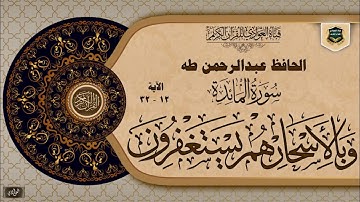 قناة العفواني للقرآن الكريم
الحافظ عبدالرحمن طه
سورة المائدة
الآية
١٢ - ٣٢
وبالأسحار هم يستغفرون
القرآن الكريم